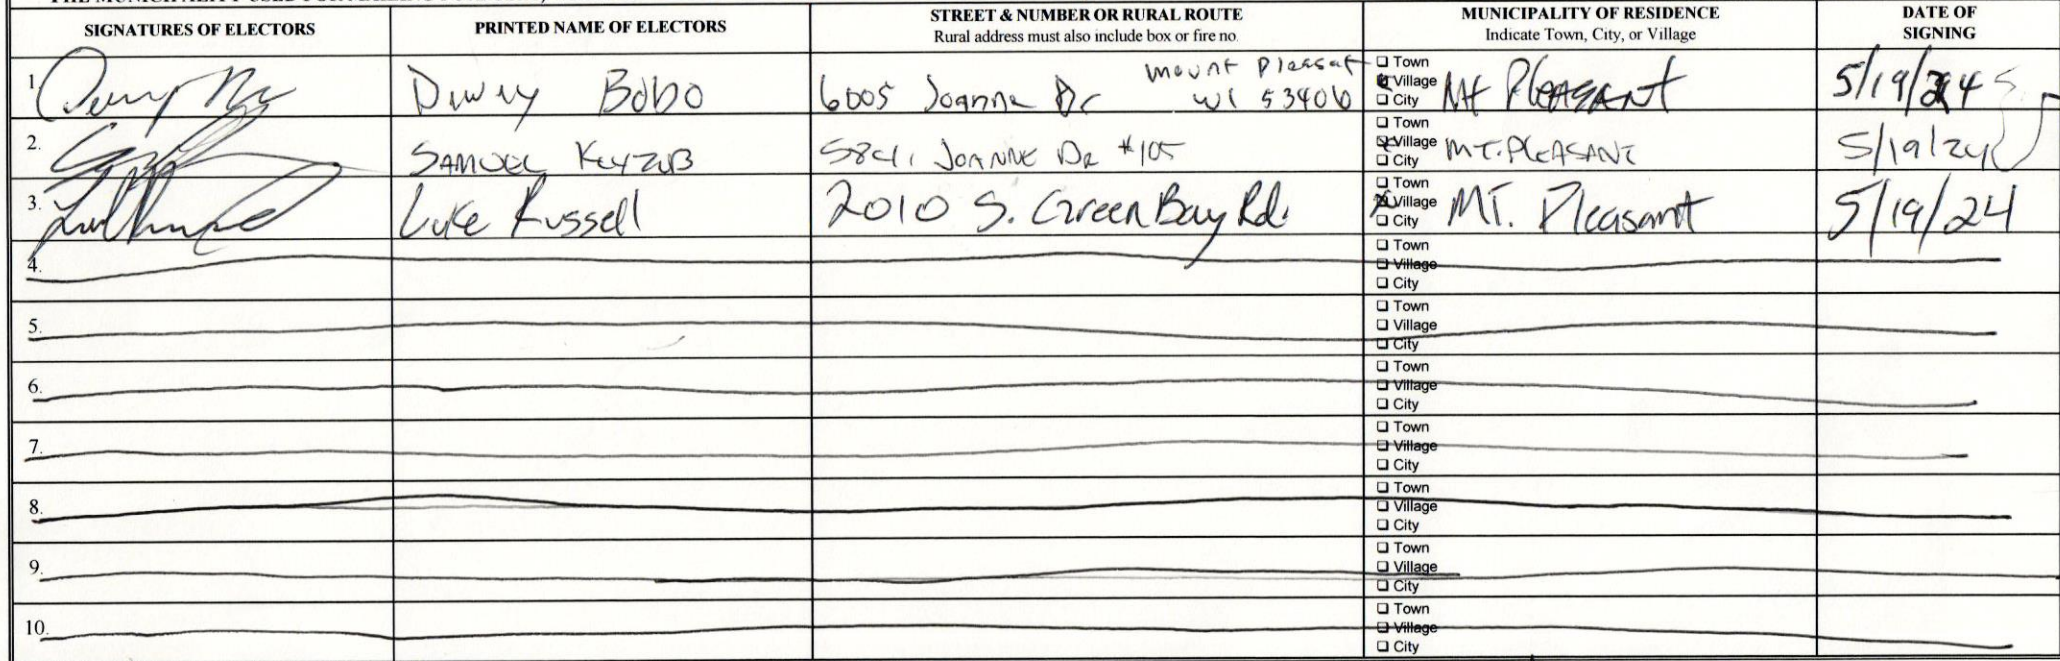 SIGNATURES OF ELECTORS
PRINTED NAME OF ELECTORS
STREET & NUMBER OR RURAL ROUTE
Rural address must also include box or fire no.
MUNICIPALITY OF RESIDENCE
Indicate Town, City, or Village
DATE OF
SIGNING
1 Bobo 6005 Joanne Dr ☐ Town
Mount Pleasat ☐ Village Mt PLEASANT 5/19/24
WI 53406 ☐ City
2. SAMUEL JOANNE DR #105 ☐ Town
☐ Village MT. PLEASANT 5/19/24
☐ City
3. Luke Russell 2010 S. Green Bay Rd. ☐ Town
☐ Village MT. Pleasant 5/19/24
☐ City
4. ☐ Town
☐ Village
☐ City
5. ☐ Town
☐ Village
☐ City
6. ☐ Town
☐ Village
☐ City
7. ☐ Town
☐ Village
☐ City
8. ☐ Town
☐ Village
☐ City
9. ☐ Town
☐ Village
☐ City
10. ☐ Town
☐ Village
☐ City